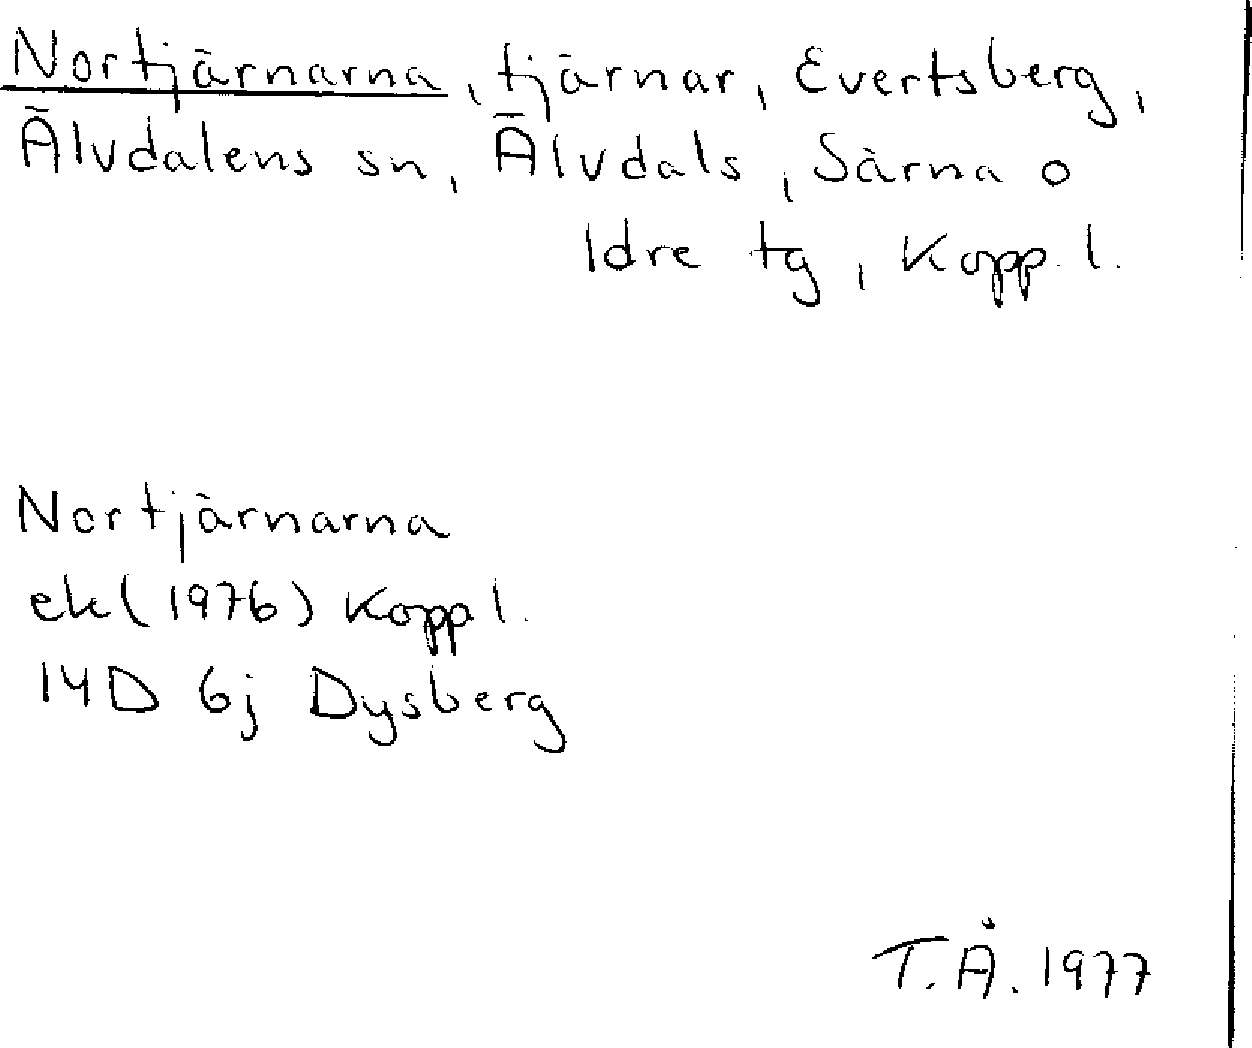 Nortjärnarna, tjärnar, Evertsberg,
Älvdalens sn, Älvdals, Särna o
Idre tg, Kopp. l.
Nortjärnarna
ek (1976) Kopp l.
14D 6j Dysberg
T.Å. 1977